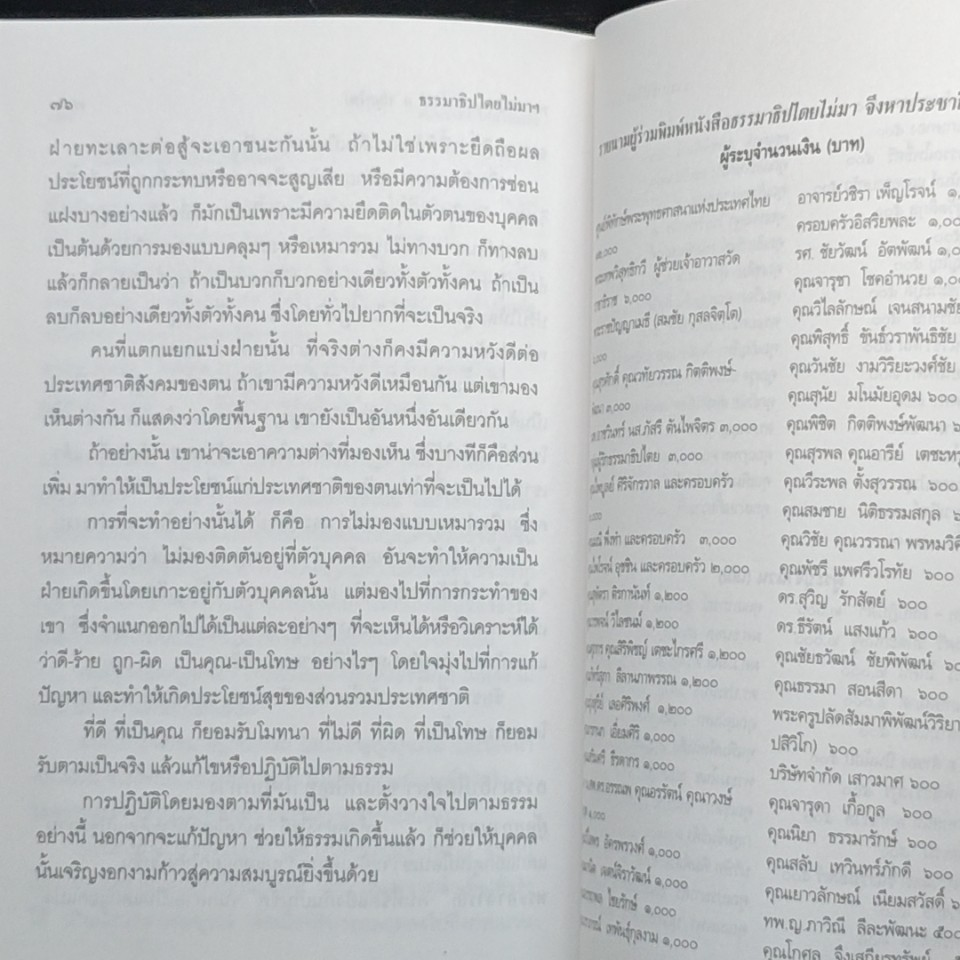 ๗๖
ธรรมาธิปไตยไม่มาฯ
ฝ่ายทะเลาะต่อสู้จะเอาชนะกันนั้น ถ้าไม่ใช่เพราะยึดถือผล
ประโยชน์ที่ถูกกระทบหรืออาจจะสูญเสีย หรือมีความต้องการซ่อน
แฝงบางอย่างแล้ว ก็มักเป็นเพราะมีความยึดติดในตัวตนของบุคคล
เป็นต้นด้วยการมองแบบคลุมๆ หรือเหมารวม ไม่ทางบวก ก็ทางลบ
แล้วก็กลายเป็นว่า ถ้าเป็นบวกก็บวกอย่างเดียวทั้งตัวทั้งคน ถ้าเป็น
ลบก็ลบอย่างเดียวทั้งตัวทั้งคน ซึ่งโดยทั่วไปยากที่จะเป็นจริง
คนที่แตกแยกแบ่งฝ่ายนั้น ที่จริงต่างก็คงมีความหวังดีต่อ
ประเทศชาติสังคมของตน ถ้าเขามีความหวังดีเหมือนกัน แต่เขามอง
เห็นต่างกัน ก็แสดงว่าโดยพื้นฐาน เขายังเป็นอันหนึ่งอันเดียวกัน
ถ้าอย่างนั้น เขาน่าจะเอาความต่างที่มองเห็น ซึ่งบางทีก็คือส่วน
เพิ่ม มาทำให้เป็นประโยชน์แก่ประเทศชาติของตนเท่าที่จะเป็นไปได้
การที่จะทำอย่างนั้นได้ ก็คือ การไม่มองแบบเหมารวม ซึ่ง
หมายความว่า ไม่มองติดตันอยู่ที่ตัวบุคคล อันจะทำให้ความเป็น
ฝ่ายเกิดขึ้นโดยเกาะอยู่กับตัวบุคคลนั้น แต่มองไปที่การกระทำของ
เขา ซึ่งจำแนกออกไปได้เป็นแต่ละอย่างๆ ที่จะเห็นได้หรือวิเคราะห์ได้
ว่าดี-ร้าย ถูก-ผิด เป็นคุณ-เป็นโทษ อย่างไรๆ โดยใจมุ่งไปที่การแก้
ปัญหา และทำให้เกิดประโยชน์สุขของส่วนรวมประเทศชาติ
ที่ดี ที่เป็นคุณ ก็ยอมรับโมทนา ที่ไม่ดี ที่ผิด ที่เป็นโทษ ก็ยอม
รับตามเป็นจริง แล้วแก้ไขหรือปฏิบัติไปตามธรรม
การปฏิบัติโดยมองตามที่มันเป็น และตั้งวางใจไปตามธรรม
อย่างนี้ นอกจากจะแก้ปัญหา ช่วยให้ธรรมเกิดขึ้นแล้ว ก็ช่วยให้บุคคล
นั้นเจริญงอกงามก้าวสู่ความสมบูรณ์ยิ่งขึ้นด้วย
รายนามผู้ร่วมพิมพ์หนังสือธรรมาธิปไตยไม่มา จึงหาประชาธิ
ผู้ระบุจำนวนเงิน (บาท)
ศูนย์พิทักษ์พระพุทธศาสนาแห่งประเทศไทย
ผู้ช่วยเจ้าอาวาสวัด
๖,๐๐๐
(สมชัย กุสลจิตฺโต)
คุณวทัยวรรณ กิตติพงษ์-
๓,๐๐๐
นส.ภัสรี ตันไพจิตร ๓,๐๐๐
๓,๐๐๐
ศิริจักรวาล และครอบครัว
และครอบครัว ๓,๐๐๐
และครอบครัว ๒,๐๐๐
ติรกานันท์ ๑,๒๐๐
วิไลชนม์ ๑,๒๐๐
คุณสิริพิชญ์ เตชะไกรศรี ๑,๒๐๐
ลิลานภาพรรณ ๑,๒๐๐
เลอศิริพงศ์ ๑,๒๐๐
เอี่ยมศิริ ๑,๐๐๐
ธีรดากร ๑,๐๐๐
คุณอรรัตน์ คุณาวงษ์
อัครพรวงศ์ ๑,๐๐๐
๑,๐๐๐
ไชยรักษ์ ๑,๐๐๐
๑,๐๐๐
อาจารย์วชิรา เพ็ญโรจน์
ครอบครัวอิสริยพละ ๑,๐๐๐
รศ. ชัยวัฒน์ อัตพัฒน์
คุณจารุชา โชคอำนวย
คุณวิไลลักษณ์ เจนสนามชัย
คุณพิสุทธิ์ ขันธ์วราพันธิชัย
คุณวันชัย งามวิริยะวงศ์ชัย
คุณสุนัย มโนมัยอุดม ๖๐๐
คุณพิชิต กิตติพงษ์พัฒนา
คุณสุรพล คุณอารีย์
คุณวีระพล ตั้งสุวรรณ ๖๐๐
คุณสมชาย นิติธรรมสกุล
คุณวิชัย คุณวรรณา
คุณพัชรี แพศรีวโรทัย ๖๐๐
ดร.สุวิญ รักสัตย์ ๖๐๐
ดร.ธีรัตน์ แสงแก้ว ๖๐๐
คุณชัยธวัฒน์ ชัยพิพัฒน์
คุณธรรมา สอนสีดา ๖๐๐
พระครูปลัดสัมมาพิพัฒน์วิริยา
ปสิวิโก) ๖๐๐
บริษัทจำกัด เสาวมาศ ๖๐๐
คุณจารุดา เกื้อกูล ๖๐๐
คุณนิยา ธรรมารักษ์ ๖๐๐
คุณสลับ เทวินทร์ภักดี ๖๐๐
คุณเยาวลักษณ์ เนียมสวัสดิ์
ทพ.ญ.ภาวิณี ลีละพัฒนะ ๕๐๐
คุณโกศล จึงเสถียรทรัพย์